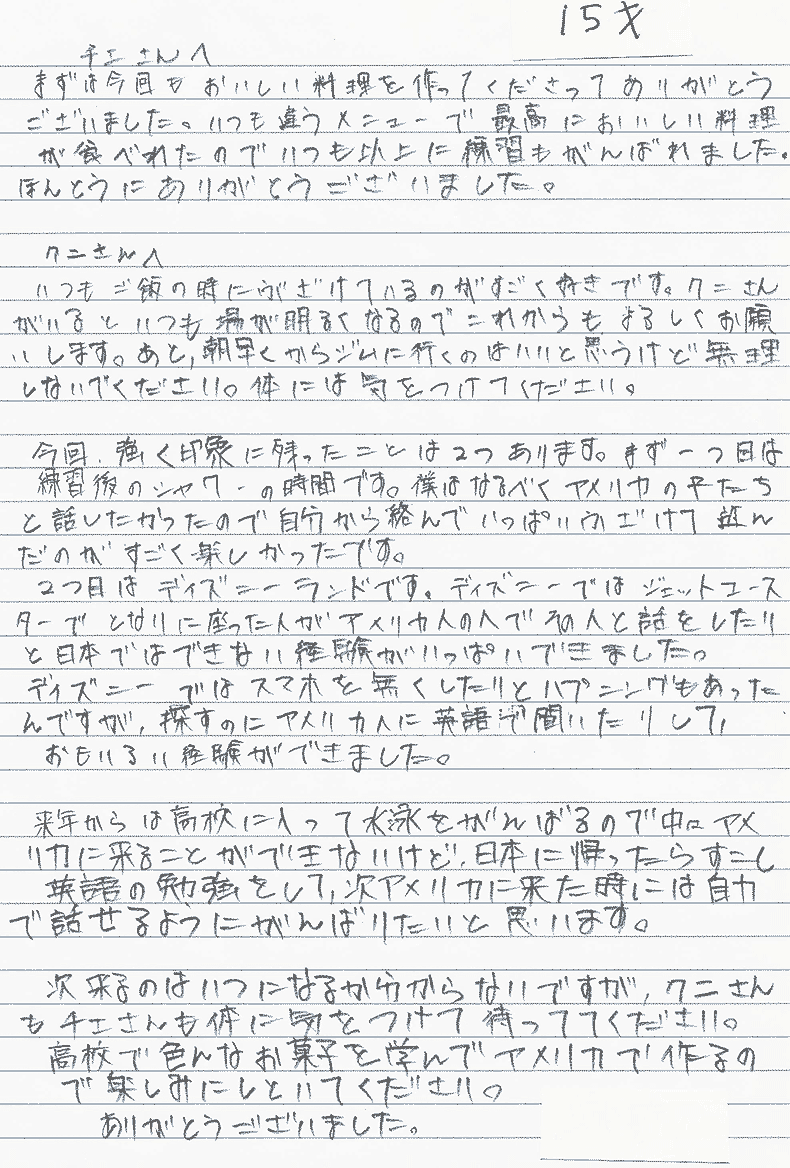 15才
チエさんへ
まずは今回もおいしい料理を作ってくださってありがとう
ございました。いつも違うメニューで最高においしい料理
が食べれたのでいつも以上に練習もがんばれました。
ほんとうにありがとうございました。
クニさんへ
いつもご飯の時にふざけているのがすごく好きです。クニさん
がいるといつも場が明るくなるのでこれからもよろしくお願
いします。あと、朝早くからジムに行くのはいいと思うけど無理
しないでください。体には気をつけてください。
今回、強く印象に残ったことは2つあります。まず一つ目は
練習後のシャワーの時間です。僕はなるべくアメリカの子たち
と話したかったので自分から絡んでいっぱいふざけて遊ん
だのがすごく楽しかったです。
2つ目はディズニーランドです。ディズニーではジェットコース
ターでとなりに座った人がアメリカ人の人でその人と話をしたり
と日本ではできない経験がいっぱいできました。
ディズニーではスマホを無くしたりとハプニングもあった
んですが、探すのにアメリカ人に英語で聞いたりして、
おもいろい経験ができました。
来年からは高校に入って水泳をがんばるので中々アメ
リカに来ることができないけど、日本に帰ったらすこし
英語の勉強をして、次アメリカに来た時には自力
で話せるようにがんばりたいと思います。
次来るのはいつになるか分からないですが、クニさん
もチエさんも体に気をつけて待っててください。
高校で色んなお菓子を学んでアメリカで作るの
で楽しみにしといてください。
ありがとうございました。